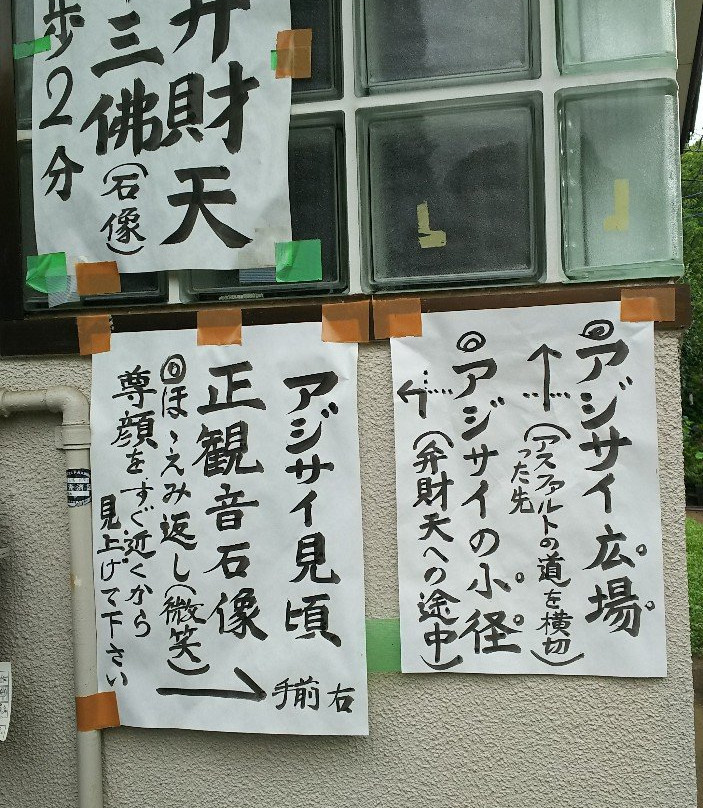 弁財天
三佛(石像)
歩2分
◎アジサイ広場
↑(アスファルトの道を横切
った先)
◎アジサイの小径
←(弁財天への途中)
アジサイ見頃
正観音石像
◎ほゝえみ返し(微笑)
尊顔をすぐ近くから
見上げて下さい
→手前右